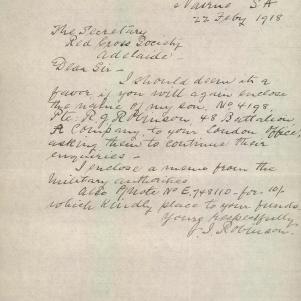 Nairne S A
22 Feby 1918
The Secretary
Red Cross Society
Adelaide
Dear Sir -
I should deem it a
favor if you will again enclose
the name of my son, No 4198,
Pte. R. G. Robinson 48 Battalion
A Company, to your London Office,
asking them to continue their
enquiries -
I enclose a memo from the
military authorities
Also P/note No E,948110 - for - 10/-
which kindly place to your funds.
Yours respectfully
J. Robinson.